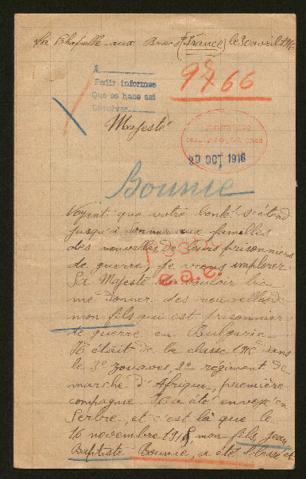 La Chapelle aux Bois (France) le 30 avril 1916
A
Pedir informes
Que se hace así
9766
Majesté
20 OCT 1916
Bounie
Voyant que votre bonté s'étend
jusqu'à donner aux familles
des nouvelles de leurs prisonniers
de guerre, je viens implorer
Sa Majesté de vouloir bien
me donner des nouvelles de
mon fils qui est prisonnier
de guerre en Bulgarie
Il était de la classe
le 3e zouaves, 2e régiment de
marche d'Afrique, première
compagnie. Il a été envoyé en
Serbie, et c'est là que le
16 novembre 1915, mon fils Jean
Baptiste Bounie, a été blessé et